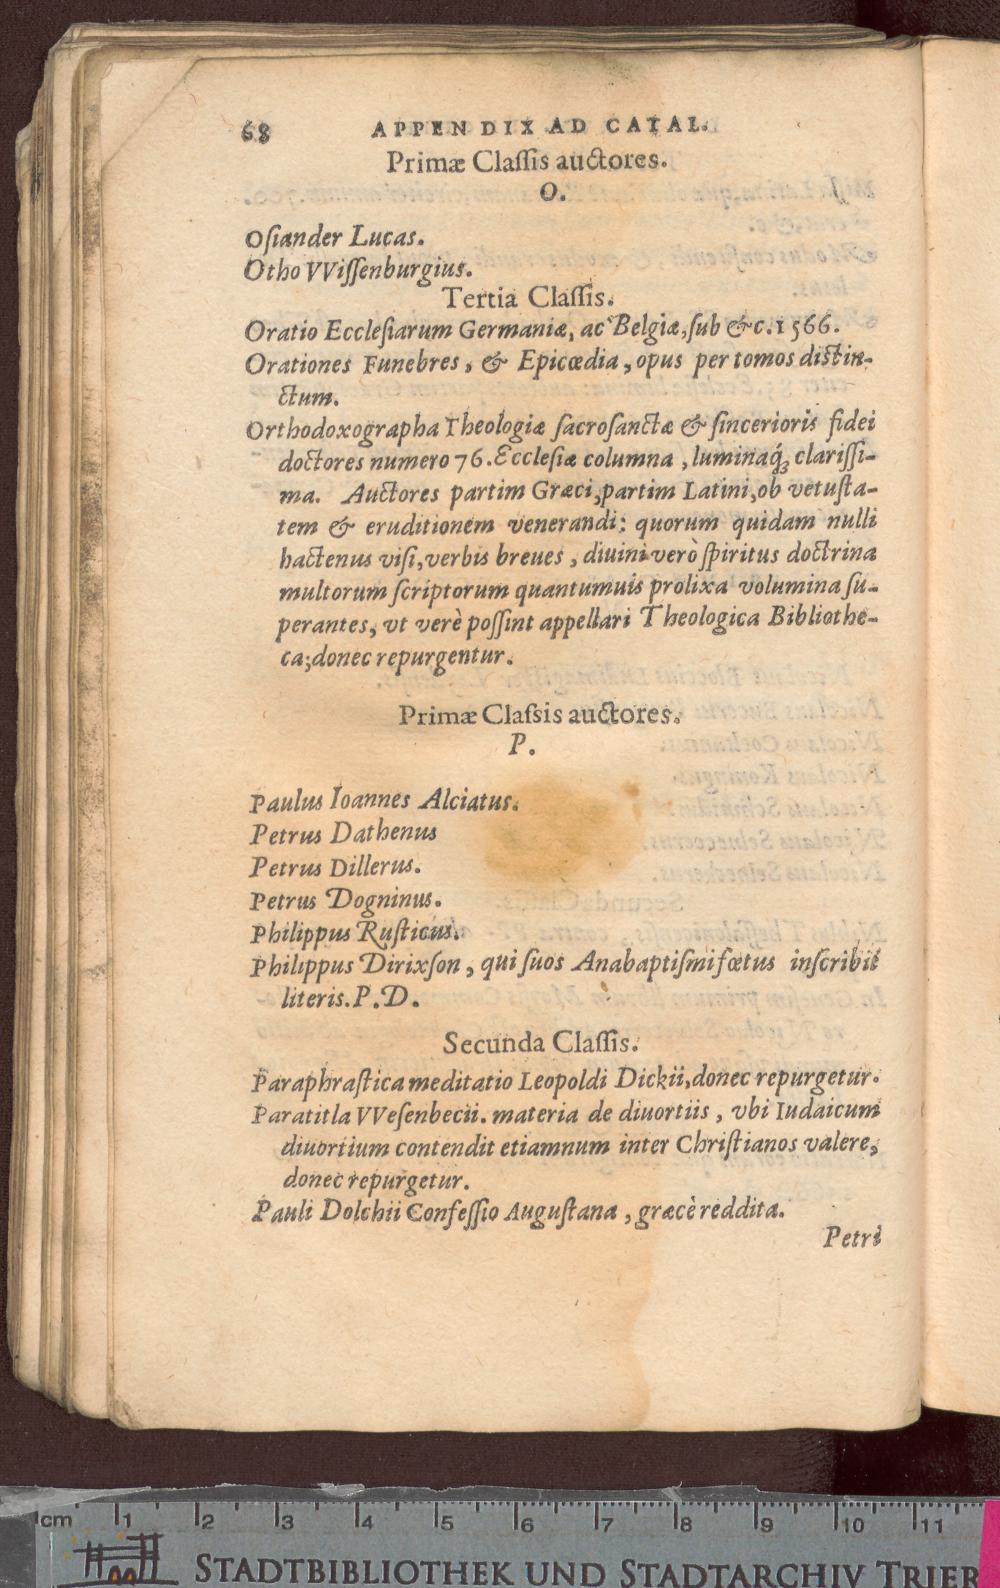 68 APPENDIX AD CATAL.
Primæ Claſſis auctores.
O.
Oſiander Lucas.
Otho VViſſenburgius.
Tertia Claſſis.
Oratio Eccleſiarum Germaniæ, ac Belgiæ, ſub &c. 1566.
Orationes Funebres, & Epicœdia, opus per tomos distin-
ctum.
Orthodoxographa Theologiæ ſacroſanctæ & ſincerioris fidei
doctores numero 76. Eccleſiæ columna, luminaq́; clariſſi-
ma. Auctores partim Græci, partim Latini, ob vetuſta-
tem & eruditionem venerandi: quorum quidam nulli
hactenus viſi, verbis breues, diuini verò ſpiritus doctrina
multorum ſcriptorum quantumuis prolixa volumina ſu-
perantes, vt verè poſſint appellari Theologica Bibliothe-
ca; donec repurgentur.
Primæ Claſsis auctores.
P.
Paulus Ioannes Alciatus.
Petrus Dathenus
Petrus Dillerus.
Petrus Dogninus.
Philippus Ruſticus.
Philippus Dirixſon, qui ſuos Anabaptiſmi fœtus inſcribit
literis. P. D.
Secunda Claſſis.
Paraphraſtica meditatio Leopoldi Dickii, donec repurgetur.
Paratitla VVeſenbecii. materia de diuortiis, vbi Iudaicum
diuortium contendit etiamnum inter Chriſtianos valere,
donec repurgetur.
Pauli Dolchii Confeſſio Auguſtana, græcè reddita.
Petri
cm 1 2 3 4 5 6 7 8 9 10 11
STADTBIBLIOTHEK UND STADTARCHIV TRIER